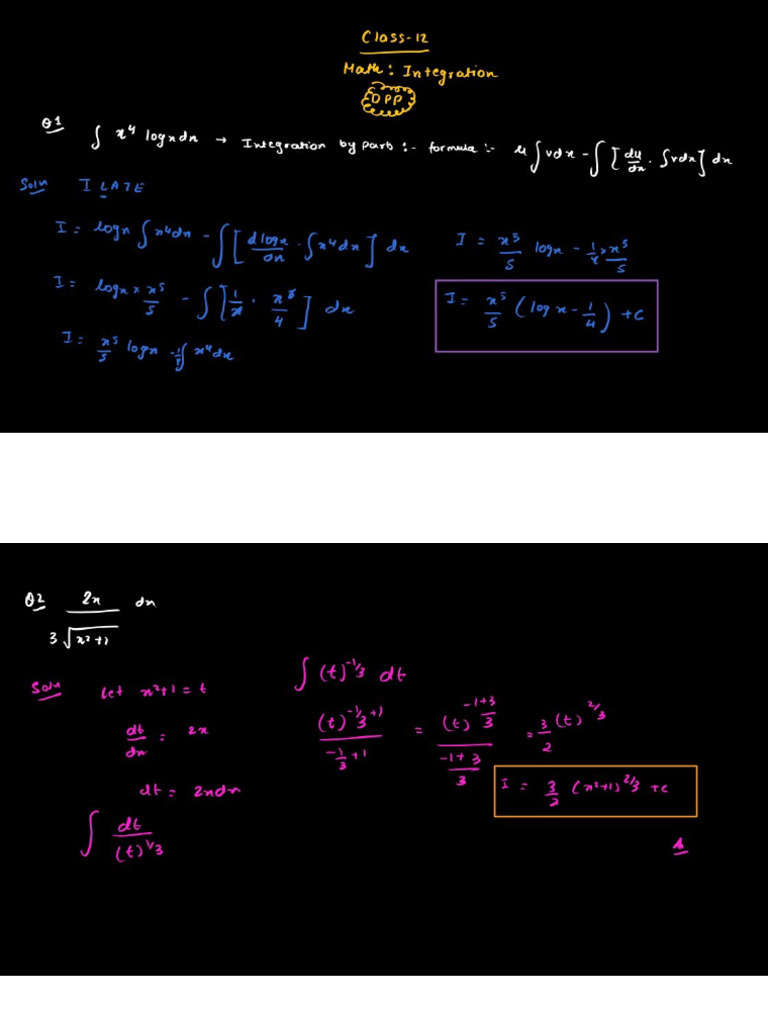 Class-12
Math: Integration
DPP
Q1 ∫ x⁴ logxdx → Integration by parts :- formula :- u∫vdx - ∫[du/dx . ∫vdx] dx
Soln I LATE
I = logx ∫x⁴dx - ∫[dlogx/dx . ∫x⁴dx] dx
I = logx × x⁵/5 - ∫[1/x . x⁵/4] dx
I = x⁵/5 logx - 1/4∫ x⁴dx
I = x⁵/5 logx - 1/4 × x⁵/5
I = x⁵/5 (logx - 1/4) + c
Q2 2x/3√x²+1 dx
Soln Let x²+1 = t
dt/dx = 2x
dt = 2xdx
∫ dt/(t)^1/3
∫(t)^-1/3 dt
(t)^-1/3+1/-1/3+1 = (t)^-1+3/3/-1+3/3 = 3/2 (t)^2/3
I = 3/2 (x²+1)^2/3 + c